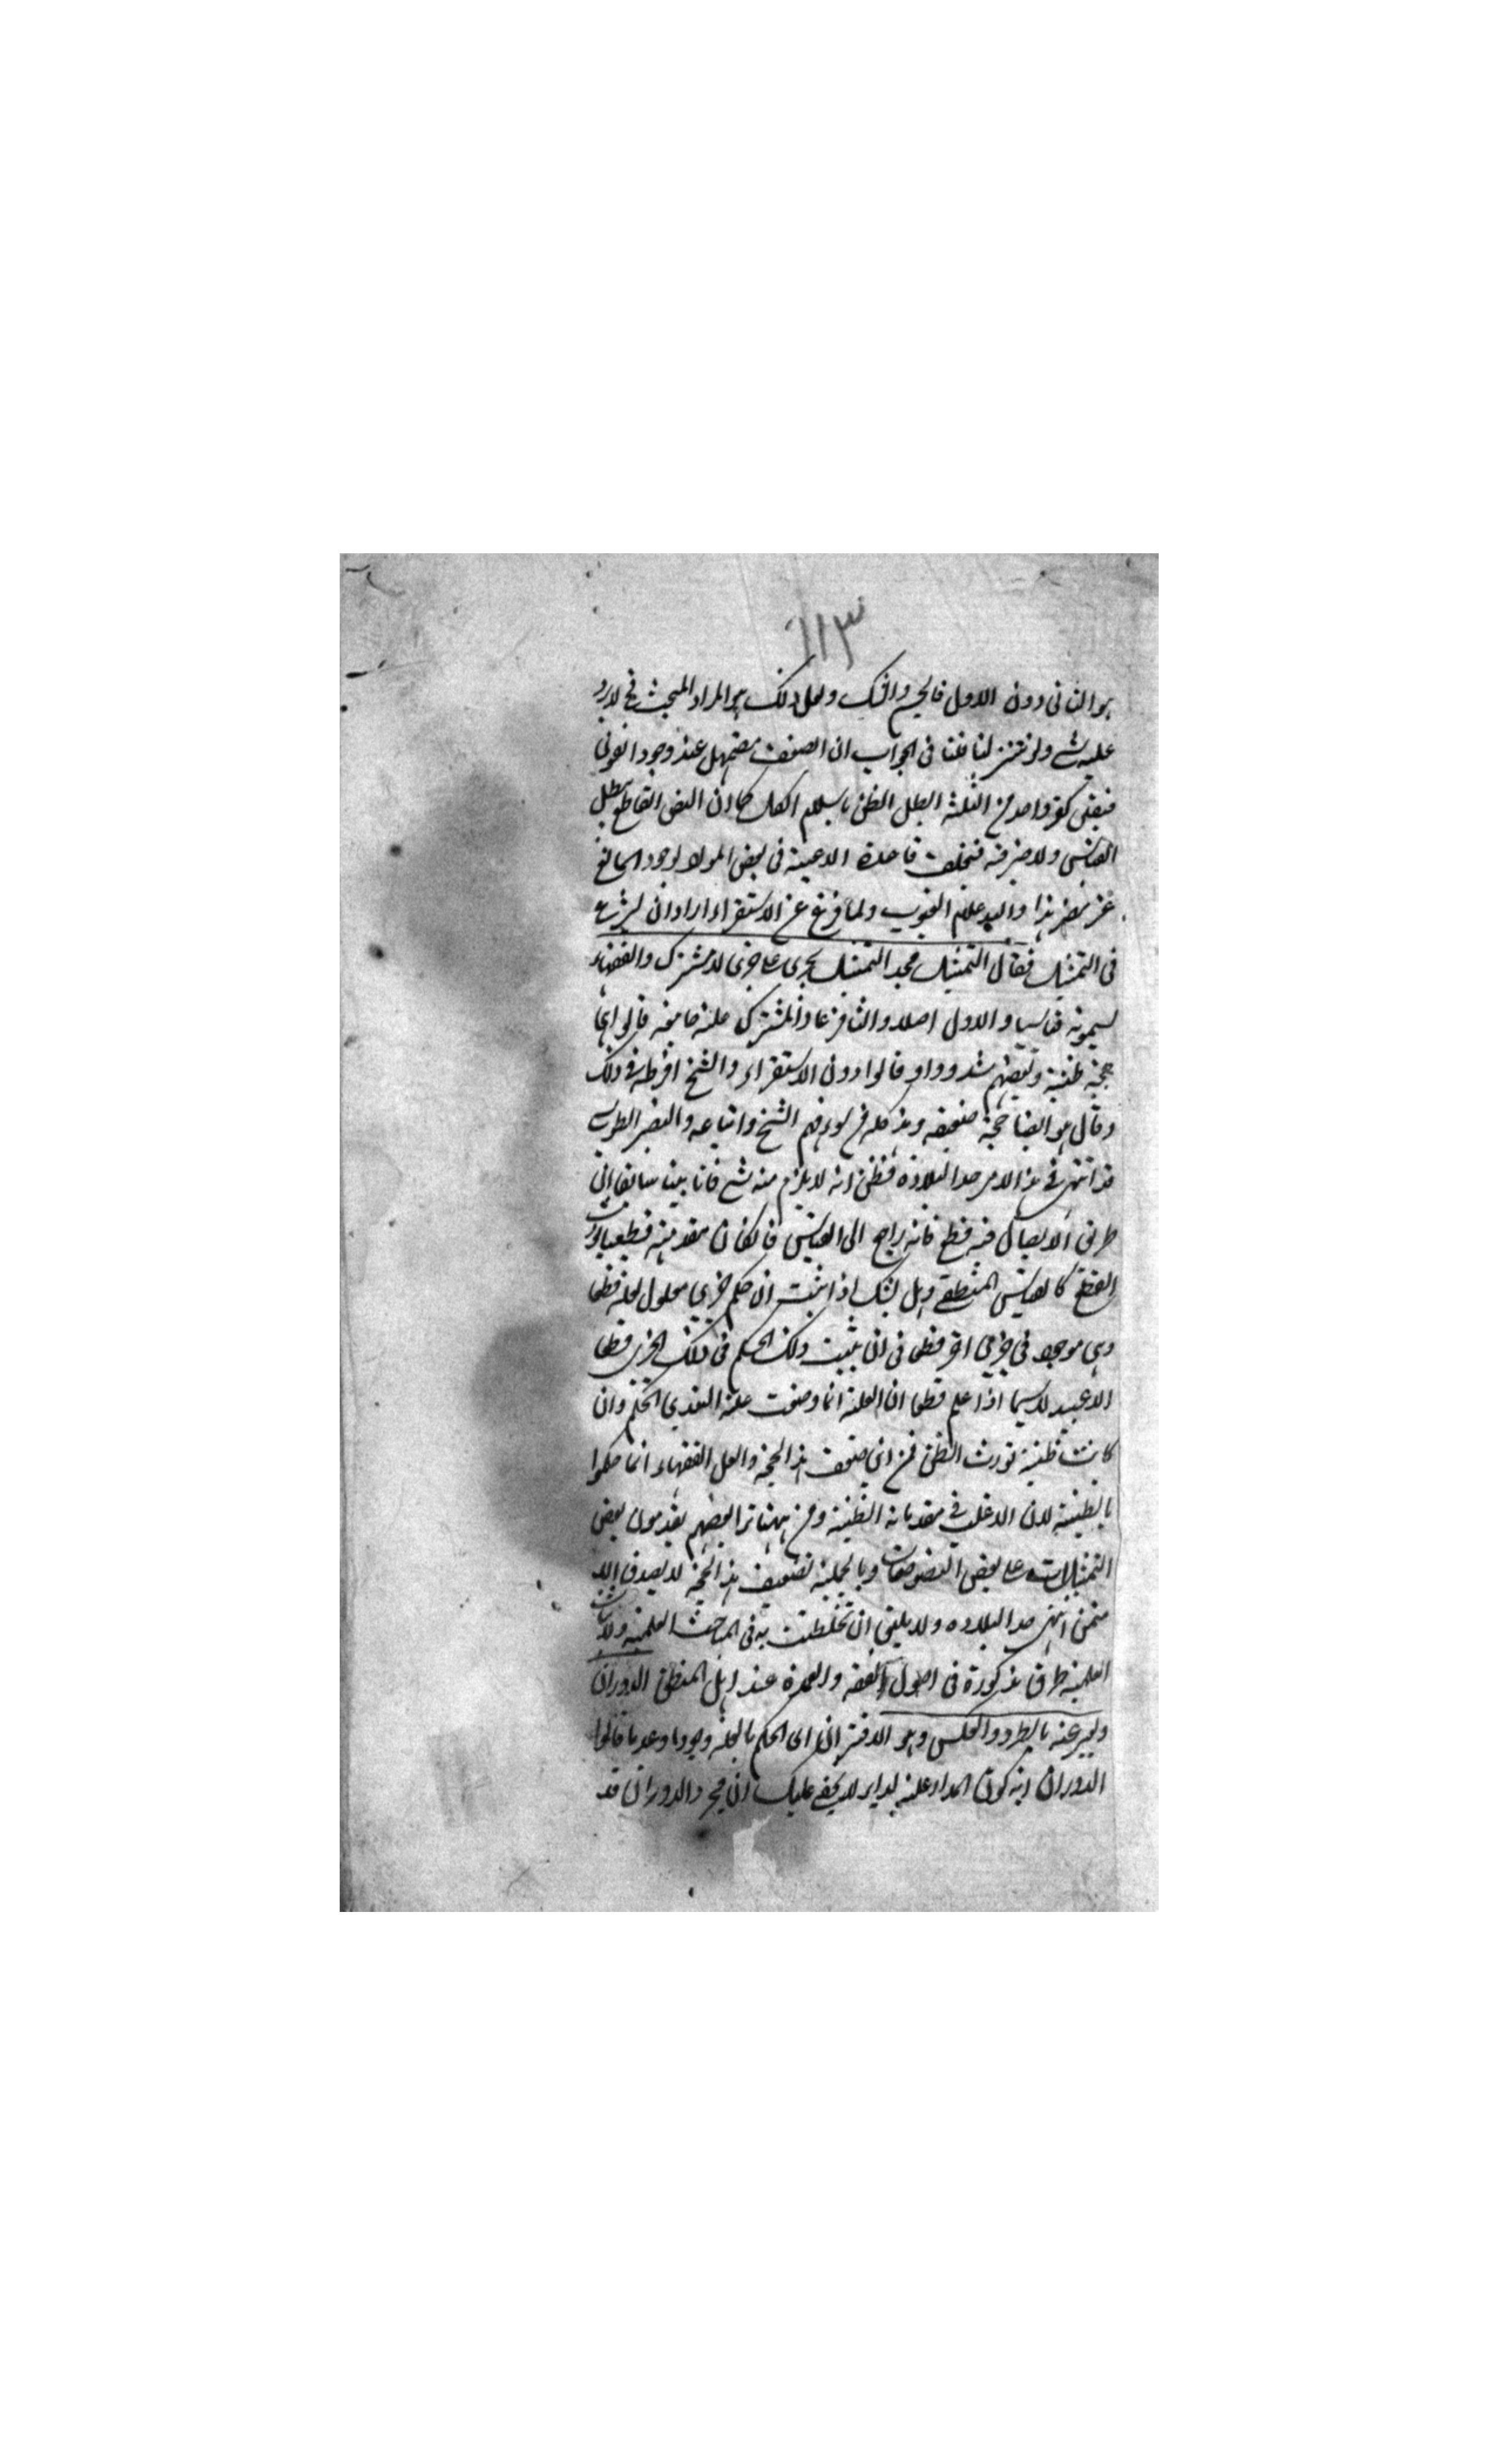 ١١٣
هو الثانى دون الاول فالجسم وافتك ولعل ذلك هو المراد المبحث فح لا يرد
عليه شے ولو تنزلنا قلنا فى الجواب ان الضعف مضمحل عند وجود القوى
فيقين كفر واحد من الثلثة ابطل الظن باسلام الكل كما ان النص القاطع يبطل
القياس ولا ضير فيه فتخلف قاعدة الاغلبية فى بعض المواد لوجود المانع
غير مضر هذا والله علام الغيوب ولما فرغ عن الاستقراء اراد ان يشرع
فى التمثيل فقال التمثيل فهذا التمثيل بجزى على جزى لامر مشترك والفقهاء
يسمونه قياسا والاول اصلا والثانى فرعا والمشترك علة جامعة قالوا انها
حجة ظنية وبعضهم شددوا وقالوا دون الاستقراء والشيخ افرط فى ذلك
وقال هو ايضا حجة ضعيفة وهذا كله من سوء فهم الشيخ واتباعه والنصير الطوسى
قد انتهى فى هذا الامر حد البلادة فظن انه لا يلزم منه شے فانا بينا سابقا ان
طرق الايصال فيه قطع فانه راجع الى القياس فان كان مقدمته قطعيا يورث
القطع كالقياس المنطقى وهل يشك اذا ثبت ان حكم جزى معلول لعلة قطعا
وهى موجودة فى جزى اخر قطعا فى ان يثبت ذلك الحكم فى ذلك الجزى قطعا
الا عبيد لا سيما اذا علم قطعا ان العلة انما وضعت علة لتعدى الحكم وان
كانت ظنية تورث الظن فمن اين ضعف هذا الحجة ولعل الفقهاء انما حكموا
بالظنية لان الاغلب فى مقدماته الظنية ومن ههنا ترا بعضهم يقدمون بعض
التمثيلات على بعض النصوصات وبالجملة تضعيف هذا الحجة لا يصدق الا
ممن انتهى حد البلادة ولا يليق ان تخلطت به فى المباحث العلمية ولاثبات
العلية طرق مذكورة فى اصول الفقه والعمدة عند اهل المنطق الدوران
ويعبر عنه بالطرد والعكس وهو الاقتران اى الحكم بالعلة وجودا وعدما قالوا
الدوران اية كون المدار علة للدائر لا يخفى عليك ان مجرد الدوران قد